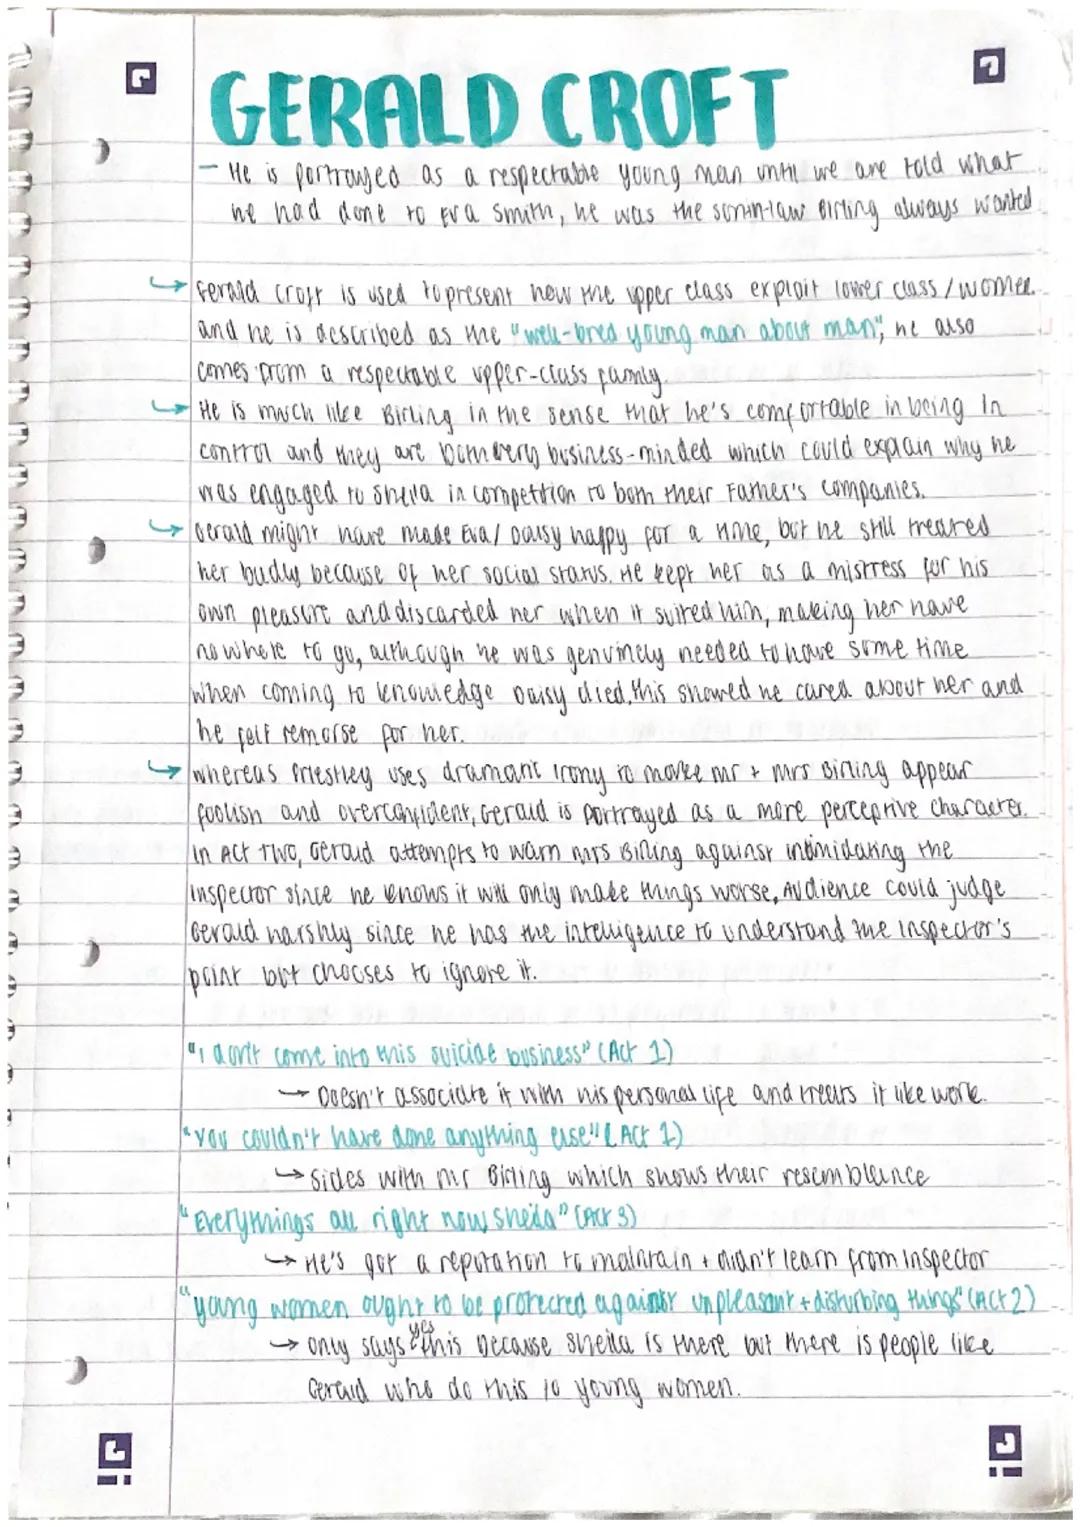 GERALD CROFT
- He is portrayed as a respectable young man until we are told what
he had done to Eva Smith, he was the son-in-law Birling always wanted
↳ Gerald Croft is used to present how the upper class exploit lower class/women
and he is described as the "well-bred young man about man", he also
comes from a respectable upper-class family.
↳ He is much like Birling in the sense that he's comfortable in being in
control and they are both very business-minded which could explain why he
was engaged to Sheila in competition to both their Father's companies.
↳ Gerald might have made Eva/Daisy happy for a time, but he still treated
her badly because of her social status. He kept her as a mistress for his
own pleasure and discarded her when it suited him, making her have
nowhere to go, although he was genuinely needed to have some time
when coming to knowledge Daisy died, this showed he cared about her and
he felt remorse for her.
↳ whereas Priestley uses dramatic irony to make Mr + Mrs Birling appear
foolish and overconfident, Gerald is portrayed as a more perceptive character.
In Act Two, Gerald attempts to warn Mrs Birling against intimidating the
Inspector since he knows it will only make things worse, Audience could judge
Gerald harshly since he has the intelligence to understand the Inspector's
point but chooses to ignore it.
"I don't come into this suicide business" (Act 1)
→ Doesn't associate it with his personal life and treats it like work.
"You couldn't have done anything else" (Act 1)
↳ Sides with Mr Birling which shows their resemblance
"Everythings all right now Sheila" (Act 3)
→ He's got a reputation to maintain + didn't learn from Inspector
"young women ought to be protected against unpleasant + disturbing things" (Act 2)
→ only says yes this because Sheila is there but there is people like
Gerald who do this to young women.